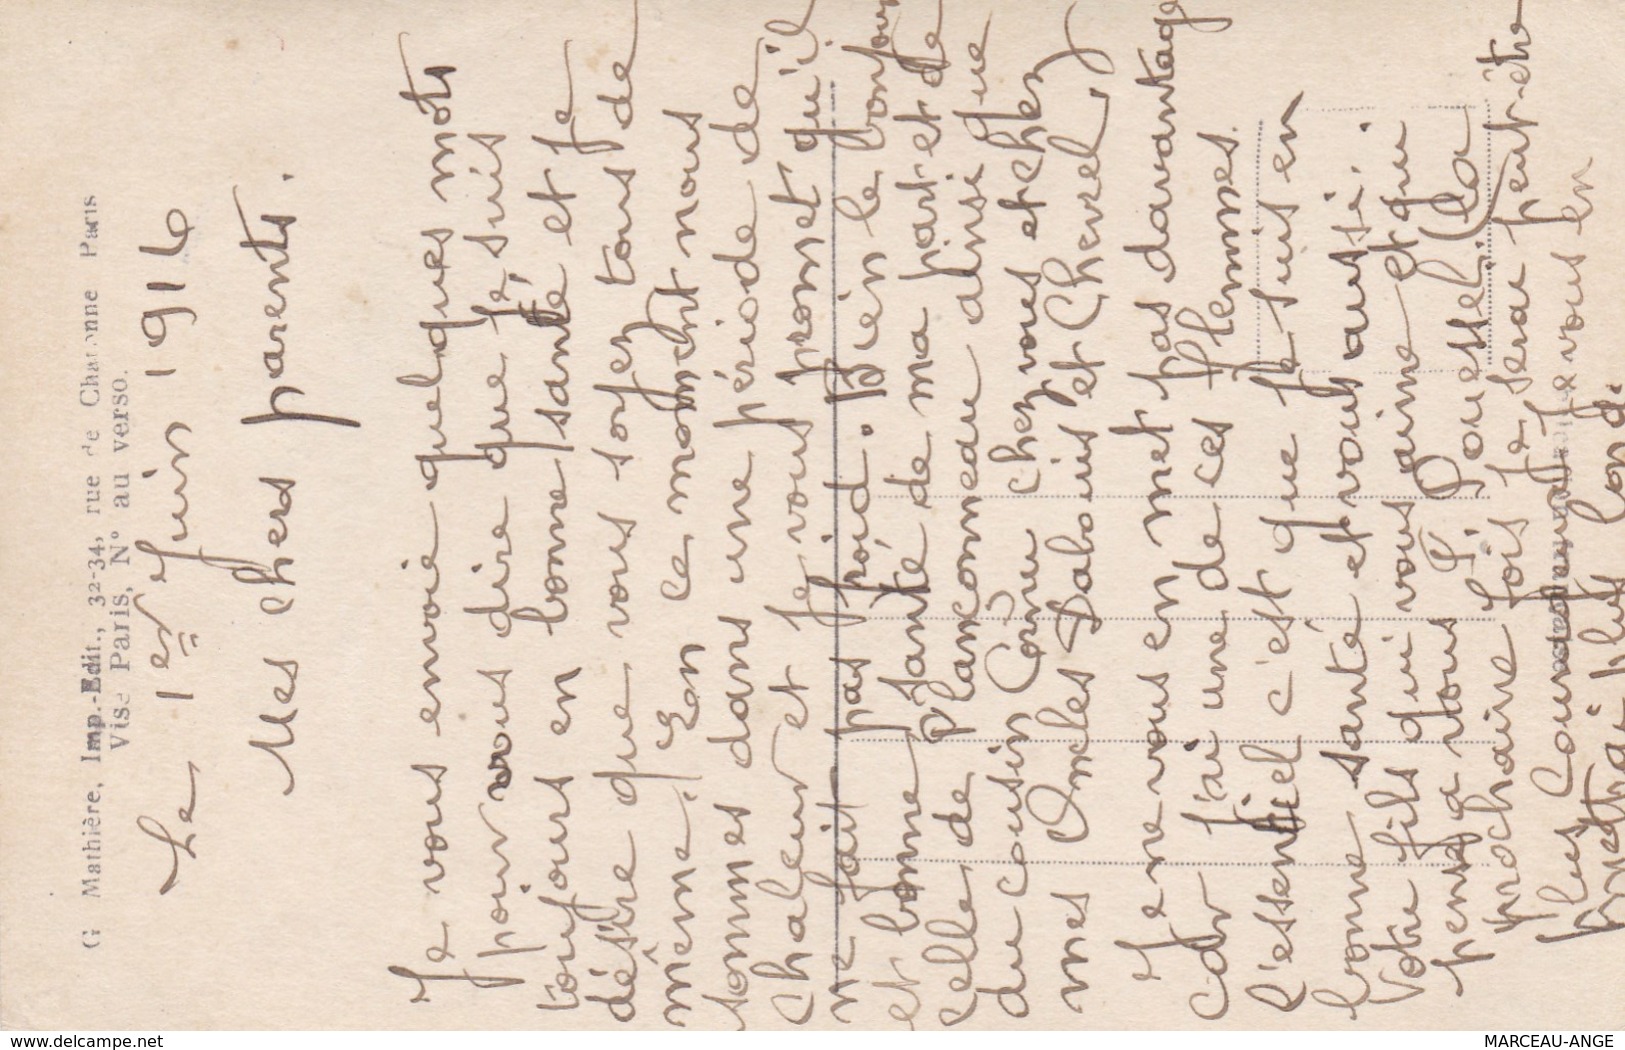 G Mathière, Imp.-Edit., 32-34, rue de Charonne Paris
Visé Paris, N° au verso.
Le 1er Juin 1916
Mes chers parents.
Je vous envoie quelques mots
pour vous dire que je suis
toujours en bonne santé et je
désire que vous soyez tous de
même. En ce moment nous
sommes dans une période de
chaleur et je vous promet qu'il
ne fait pas froid. Bien le bonjour
et bonne santé de ma part et de
celle de planconneau ainsi que
du cousin Cornu chez vous et chez
mes Oncles Dabouis et Chevrel,
Je ne vous en met pas davantage
car j'ai une de ces flemmes.
L'essentiel c'est que je suis en
bonne santé et vous aussi.
Votre fils qui vous aime et qui
pense à vous P. Poussel. (La
prochaine fois je serai peut-être
plus courageux je vous en
mettrai plus long.
www.delcampe.net
MARCEAU-ANGE